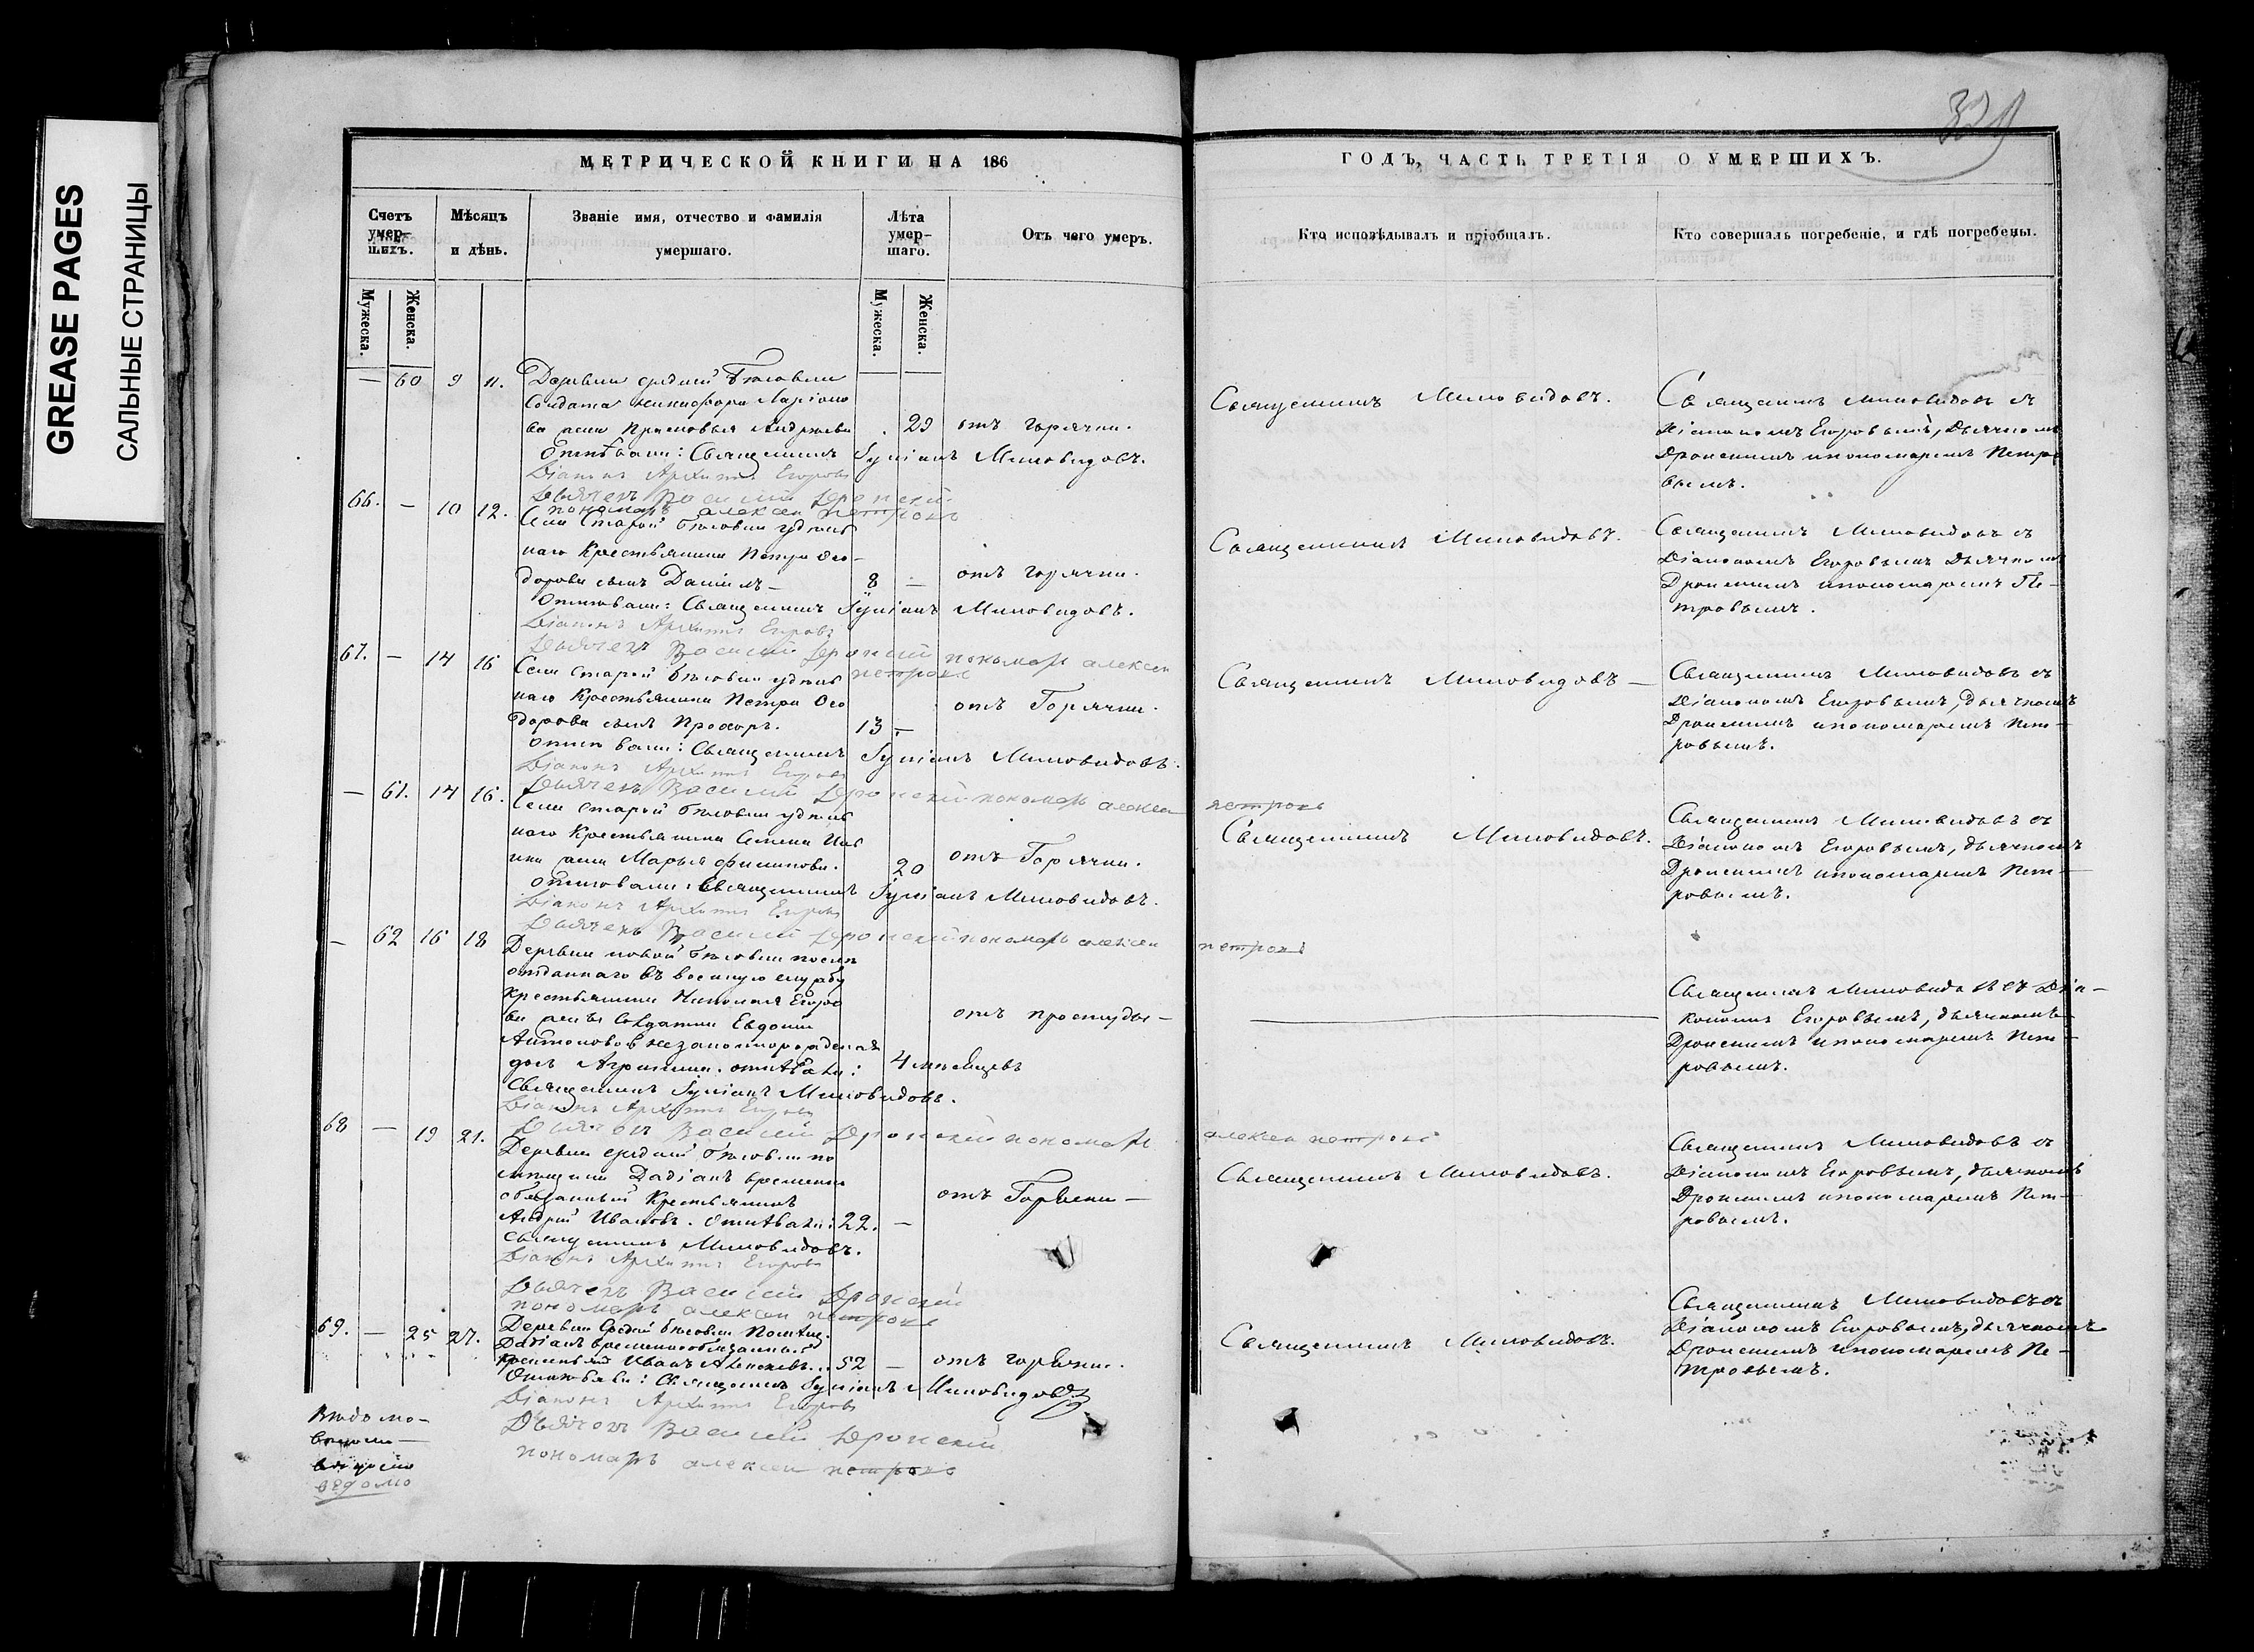 GREASE PAGES
САЛЬНЫЕ СТРАНИЦЫ
МЕТРИЧЕСКОЙ КНИГИ НА 186
ГОДЪ, ЧАСТЬ ТРЕТІЯ О УМЕРШИХЪ.
Счетъ умер-шихъ.
Мѣсяцъ и дѣнь.
Званіе имя, отчество и фамилія умершаго.
Лѣта умер-шаго.
Отъ чего умеръ.
Кто исповѣдывалъ и пріобщалъ.
Кто совершалъ погребеніе, и гдѣ погребены.
Мужеска.
Женска.
Мужеска.
Женска.
— 60 9 11. Деревни средней
Солдата Никифора Ларіоно
ва жена Андреева 29 отъ горячки.
Священникъ Миловидовъ.
Священникъ Миловидовъ съ
Діакономъ Егоровымъ, Дьячкомъ
Дронскимъ и пономаремъ Петро
вымъ.
Отпѣвали: Священникъ Миловидовъ.
Діаконъ Архипъ Егоровъ
Дьячекъ Василій Дронскій
пономарь алексеи петровъ
66. — 10 12. Села Старой удѣль
наго Крестьянина Петра Ѳео-
дорова сынъ Даніилъ — 8 — отъ горячки.
Священникъ Миловидовъ.
Священникъ Миловидовъ съ
Діакономъ Егоровымъ Дьячкомъ
Дронскимъ и пономаремъ Пе-
тровымъ.
Отпѣвали: Священникъ Миловидовъ.
Діаконъ Архипъ Егоровъ
Дьячекъ Василій Дронскій пономарь алексеи
петровъ
67. — 14 16 Села старой удѣль
наго Крестьянина Петра Ѳео
дорова сынъ Прохоръ. 13 — отъ Горячки.
Священникъ Миловидовъ —
Священникъ Миловидовъ съ
Діакономъ Егоровымъ, дьячкомъ
Дронскимъ и пономаремъ Пет-
ровымъ.
Отпѣвали: Священникъ Миловидовъ.
Діаконъ Архипъ Егоровъ
Дьячекъ Василій Дронскій пономарь алексеи петровъ
— 61. 14 16. Села старой удѣль
наго Крестьянина Семена
жена Марья Филипова. 20 отъ Горячки.
Священникъ Миловидовъ.
Священникъ Миловидовъ съ
Діакономъ Егоровымъ, дьячкомъ
Дронскимъ и пономаремъ Пет-
ровымъ.
Отпѣвали: Священникъ Миловидовъ.
Діаконъ Архипъ Егоровъ
Дьячекъ Василій Дронскій пономарь алексеи петровъ
— 62 16 18 Деревни новой послѣ
отданнаго въ военную службу
Крестьянина Николая Егоро
ва жены Солдатки Евдокіи
Антоновой незаконнорожденная
дочь отпѣвали: 4 мѣсяцевъ
отъ простуды —
Священникъ Миловидовъ съ Діа-
кономъ Егоровымъ, дьячкомъ
Дронскимъ и пономаремъ Пет-
ровымъ.
Священникъ Миловидовъ.
Діаконъ Архипъ Егоровъ
Дьячекъ Василій Дронскій пономарь алексеи петровъ
68 — 19 21. Деревни средней по
мѣщицы Дадіанъ временно
обязанный Крестьянинъ
Андрей Ивановъ. отпѣвали: 22. — отъ Горячки —
Священникъ Миловидовъ.
Священникъ Миловидовъ съ
Діакономъ Егоровымъ, дьячкомъ
Дронскимъ и пономаремъ Пет-
ровымъ.
Священникъ Миловидовъ.
Діаконъ Архипъ Егоровъ
Дьячекъ Василій Дронскій
пономарь алексеи петровъ
69. — 25 27. Деревни Средней Помѣщ.
Дадіанъ временнообязанный
Иванъ 52 — отъ горячки.
Священникъ Миловидовъ.
Священникъ Миловидовъ съ
Діакономъ Егоровымъ, дьячкомъ
Дронскимъ и пономаремъ Пе-
тровымъ.
Отпѣвали: Священникъ Миловидовъ
Діаконъ Архипъ Егоровъ
Дьячекъ Василій Дронскій
пономарь алексеи петровъ
ведомо